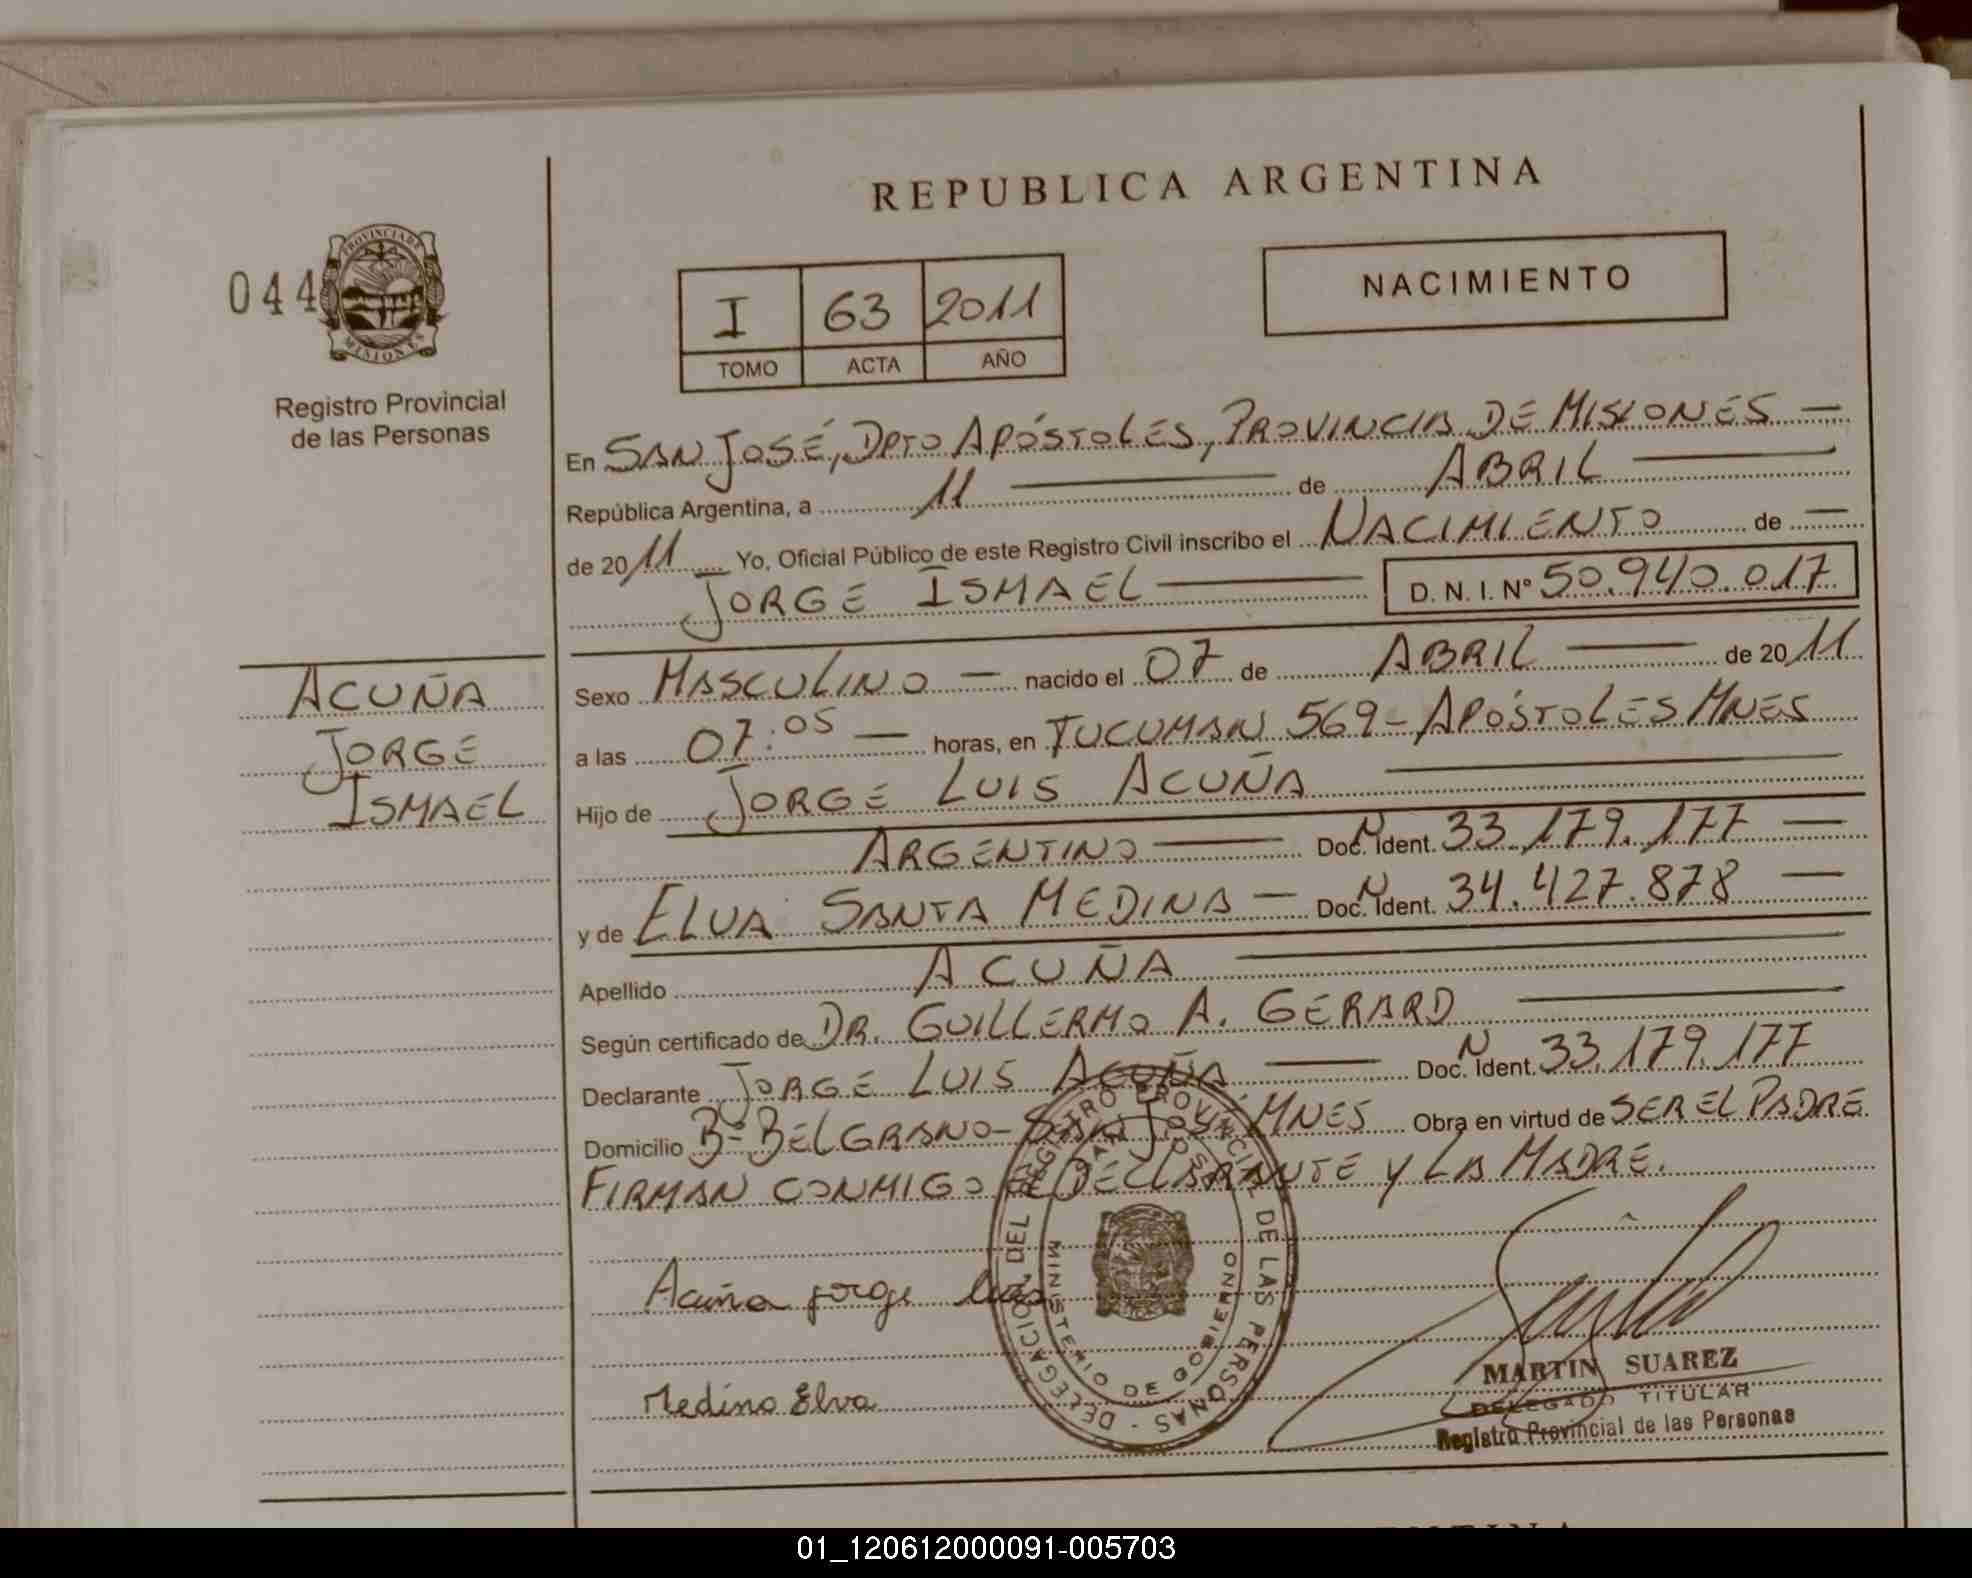 REPUBLICA ARGENTINA
044
PROVINCIA DE
MISIONES
Registro Provincial
de las Personas
NACIMIENTO
I 63 2011
TOMO ACTA AÑO
En SAN JOSÉ, DPTO APÓSTOLES, PROVINCIA DE MISIONES —
República Argentina, a 11 — de ABRIL —
de 2011 Yo, Oficial Público de este Registro Civil inscribo el NACIMIENTO de —
JORGE ISMAEL — D. N. I. Nº 50.940.017
ACUÑA
JORGE
ISMAEL
Sexo MASCULINO — nacido el 07 de ABRIL — de 2011
a las 07:05 — horas, en TUCUMAN 569 - APÓSTOLES MNES
Hijo de JORGE LUIS ACUÑA —
ARGENTINO — Doc. N Ident. 33.179.177 —
y de ELVA SANTA MEDINA — Doc. N Ident. 34.427.878 —
Apellido ACUÑA —
Según certificado de DR. GUILLERMO A. GERARD —
Declarante JORGE LUIS ACUÑA — Doc. N Ident. 33.179.177
Domicilio Bº BELGRANO - SAN JOSÉ MNES Obra en virtud de SER EL PADRE
FIRMAN CONMIGO EL DECLARANTE Y LA MADRE.
Acuña jorge luis
Medina Elva
DELEGACION DEL REGISTRO PROVINCIAL DE LAS PERSONAS -
SAN JOSE
MINISTERIO DE GOBIERNO
MARTIN SUAREZ
DELEGADO TITULAR
Registro Provincial de las Personas
01_120612000091-005703